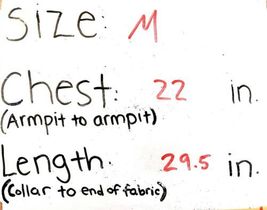 Size: M
Chest: 22 in.
(Armpit to armpit)
Length: 29.5 in.
(Collar to end of fabric)